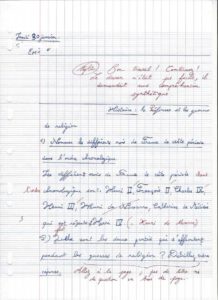 Jeudi 30 janvier
Bon travail ! Continuez !
Le devoir n'était pas facile, il
demandait une compréhension
synthétique
Histoire : la Réforme et les guerres
de religion
1) Nommer les différents rois de France de cette période
dans l'ordre chronologique.
Les différents rois de France de cette période dans
l'ordre chronologique sont : Henri II, François II, Charles IX,
Henri III, Henri de Navarre, Catherine de Médicis
qui est régente, Henri IV (= Henri de Navarre)
2) Quels sont les deux partis qui s'affrontent
pendant les guerres de religion ?
réponse.
de question en bas de page